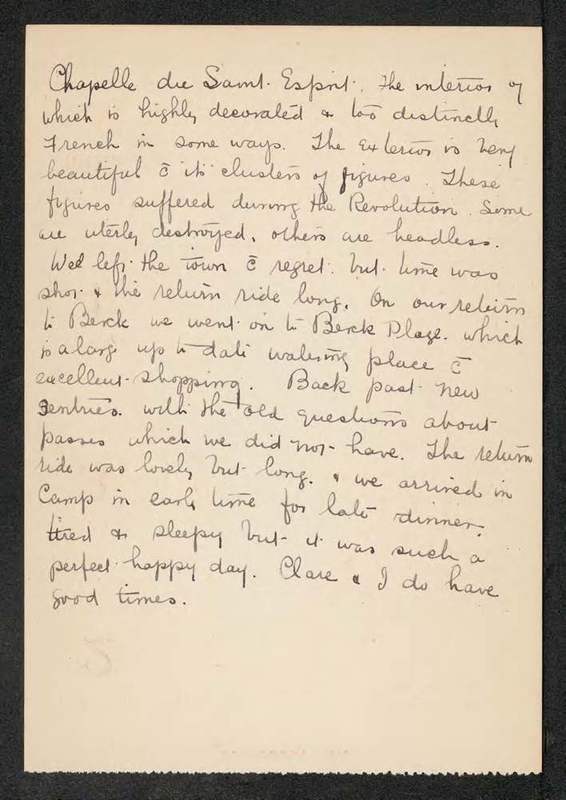 Chapelle du Saint Esprit. The interior of
which is highly decorated & too distinctly
French in some ways. The exterior is very
beautiful c̄ its clusters of figures. These
figures suffered during the Revolution. Some
are uterly destroyed, others are headless.
We left the town c̄ regret. but time was
short & the return ride long. On our return
to Berck we went on to Berck Plage. which
is a large up to date watering place c̄
excellent shopping. Back past new
sentries. with the old questions about
passes which we did not have. The return
ride was lovely but long. & we arrived in
Camp in early time for late dinner.
tired & sleepy but it was such a
perfect happy day. Clare & I do have
good times.